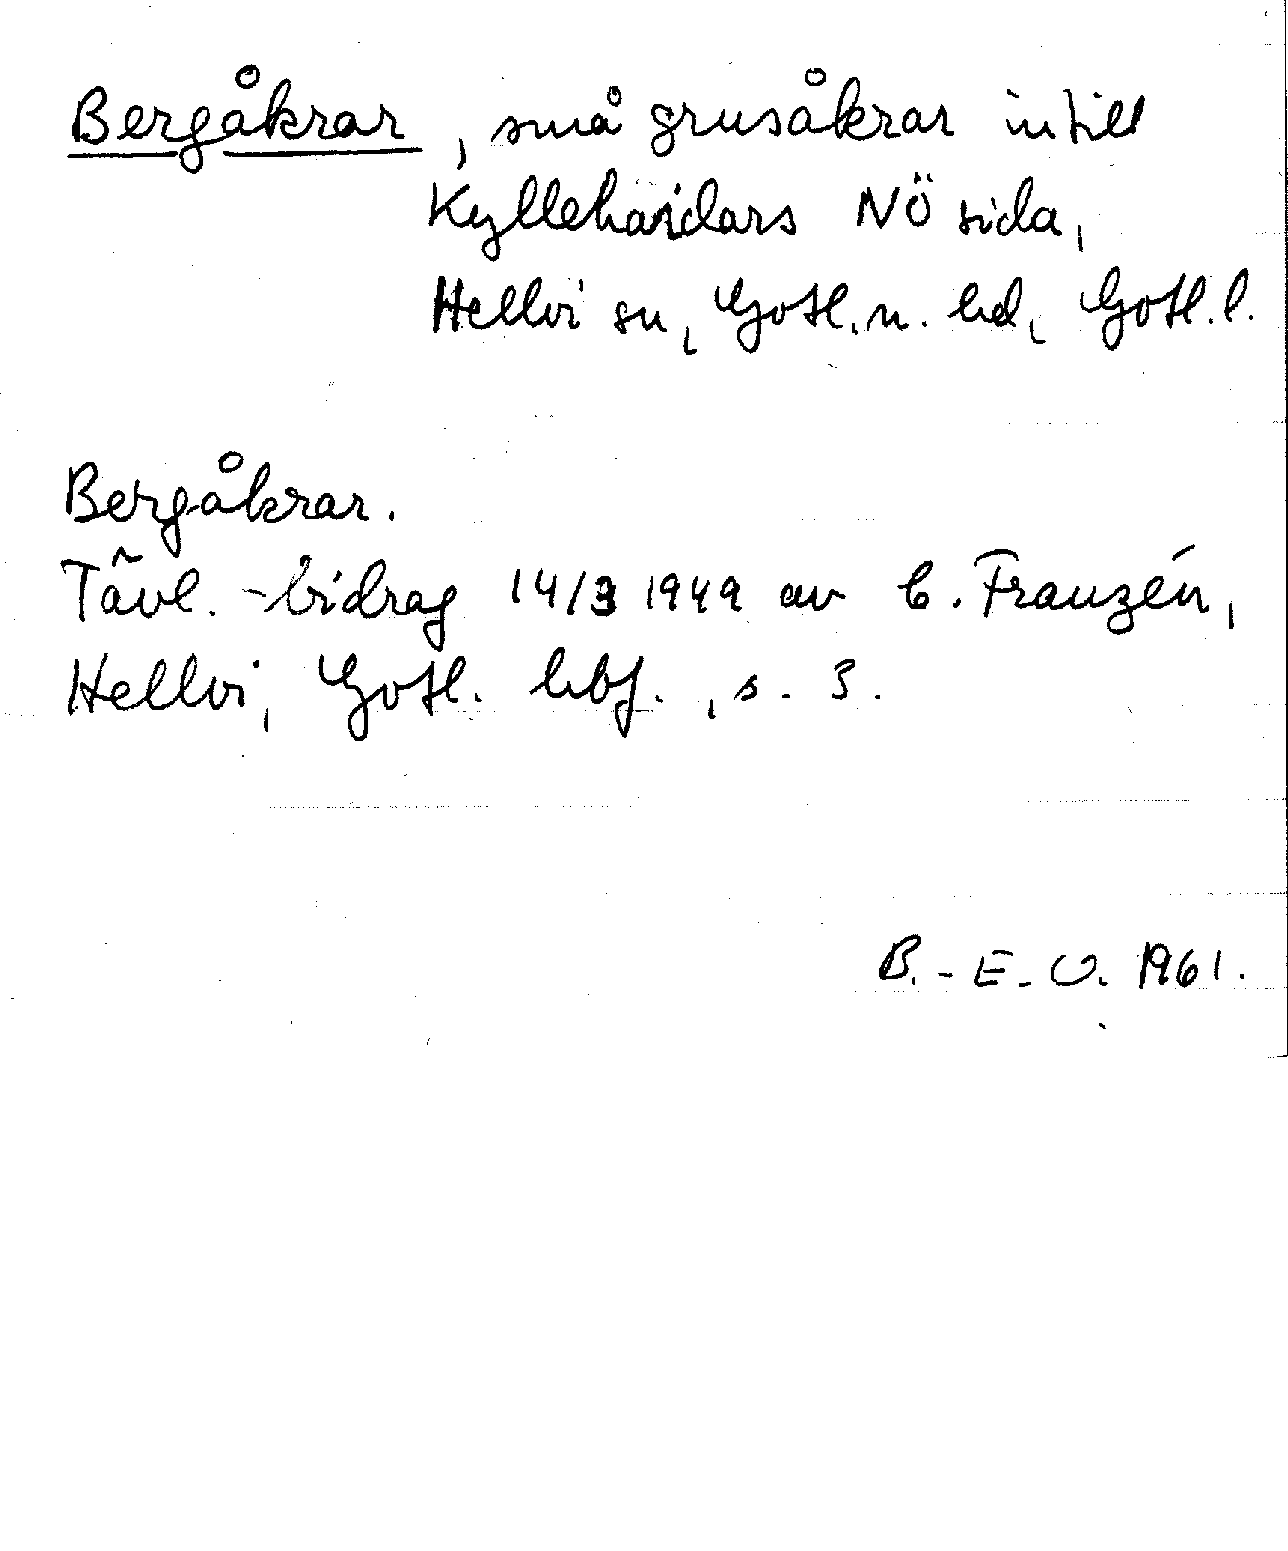 Bergåkrar, små grusåkrar intill
Kyllehaidars NÖ sida,
Hellvi sn, Gotl. n. hd, Gotl. l.
Bergåkrar.
Tävl.-bidrag 14/3 1949 av C. Franzén,
Hellvi, Gotl. hbf., s. 3.
B.-E. O. 1961.